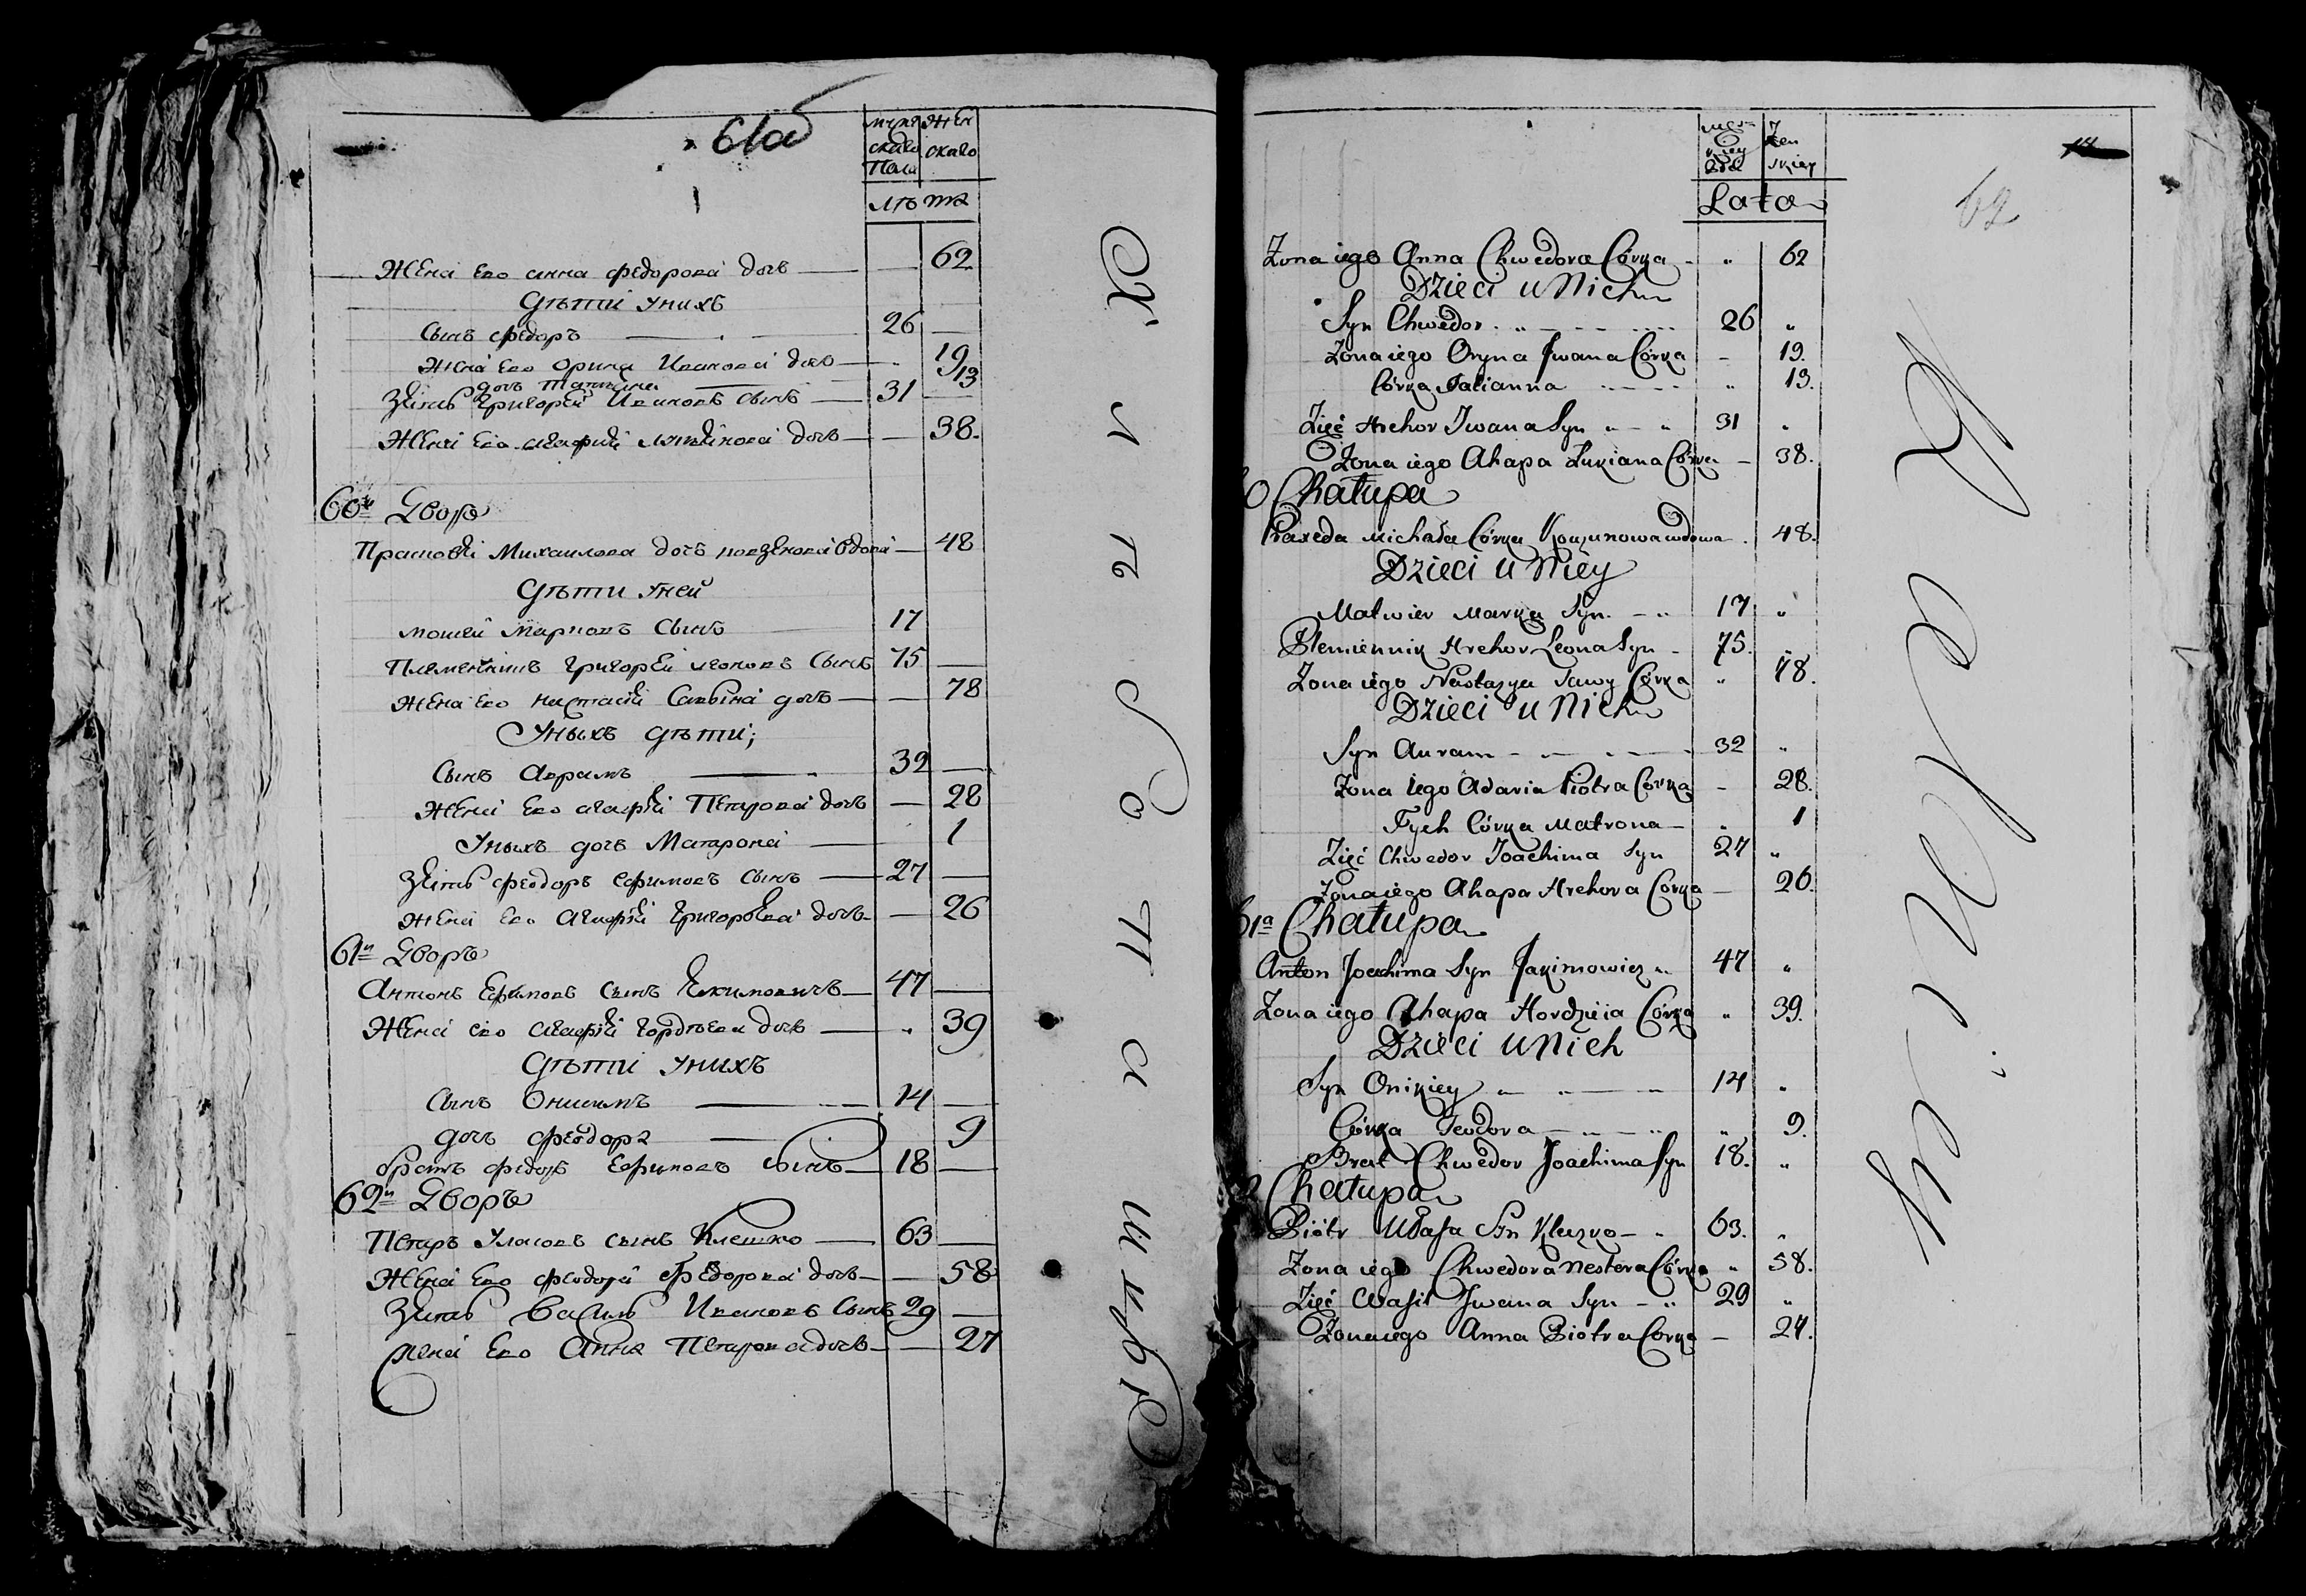 61об
мужс Жен
скаго скаго
Пола
лѣта
Жена Его анна федорова дочь 62
Дѣти унихъ
Сынъ федоръ 26
жена Его орина Иванова дочь 19
дочь татияна 13
Зять Григорей Ивановъ сынъ 31
Жена Его агафия лукянова дочь 38.
60й Дворъ
Прасковя Михаилова дочь вдова 48
Дѣти уней
Марковъ Сынъ 17
Племянникъ Григорей леоновъ Сынъ 75
жена Его настася Савина дочь 78
Уныхъ дѣти;
Сынъ Аврамъ 32
жена Его агафя Петрова дочь 28
Уныхъ дочь Матрона 1
Зять феодоръ Ефимовъ сынъ 27
жена Его Агафя григорьева дочь 26
61й Дворъ
Антонъ Ефимовъ сынъ Якимовичъ 47
Жена его агафя гордѣева дочь 39
Дѣти унихъ
Сынъ Онисимъ 14
дочь феодора 9
братъ федоръ Ефимовъ сынъ 18
62й Дворъ
Петръ Уласовъ сынъ Клешко 63
Жена Его феодора Федорова дочь 58
Зять Василь Ивановъ Сынъ 29
жена Его Анна Петрова дочь 27
62
męs- żen
kiey skiey
Lata
Żona iego Anna Chwedora Córka - " 62
Dzieci u Nich
Syn Chwedor 26 "
Żona iego Oryna Jwana Córka - 19.
Córka Tatianna " 13.
Zięć Hrehor Iwana Syn 31 "
Żona iego Ahapa Łukiana Córka - 38.
60 Chałupa
Praxeda Michała Córka wdowa . 48.
Dzieci u Niey
Matwiey Marka Syn 17 "
Plemiennik Hrehor Leona Syn - 75.
Żona iego Nastazya Sawy Córka " 78.
Dzieci u Nich
Syn Auram 32 "
Żona iego Adaria Piotra Córka - 28.
Tych Córka Matrona - " 1
Zięć Chwedor Joachima Syn 27 "
Żona iego Ahapa Hrehora Córka - 26.
61a Chałupa
Anton Joachima Syn Jakimowicz 47 "
Żona iego Ahapa Hordzieia Córka " 39.
Dzieci u Nich
Syn Onikiey 14 "
Córka Teodora " 9.
Brat Chwedor Joachima Syn 18. "
2 Chałupa
Piotr Własa Syn Kleszko - 63. "
Żona iego Chwedora Nestera Córka " 58.
Zięć Wasil Jwana Syn 29 "
Żona iego Anna Piotra Córka - 27.